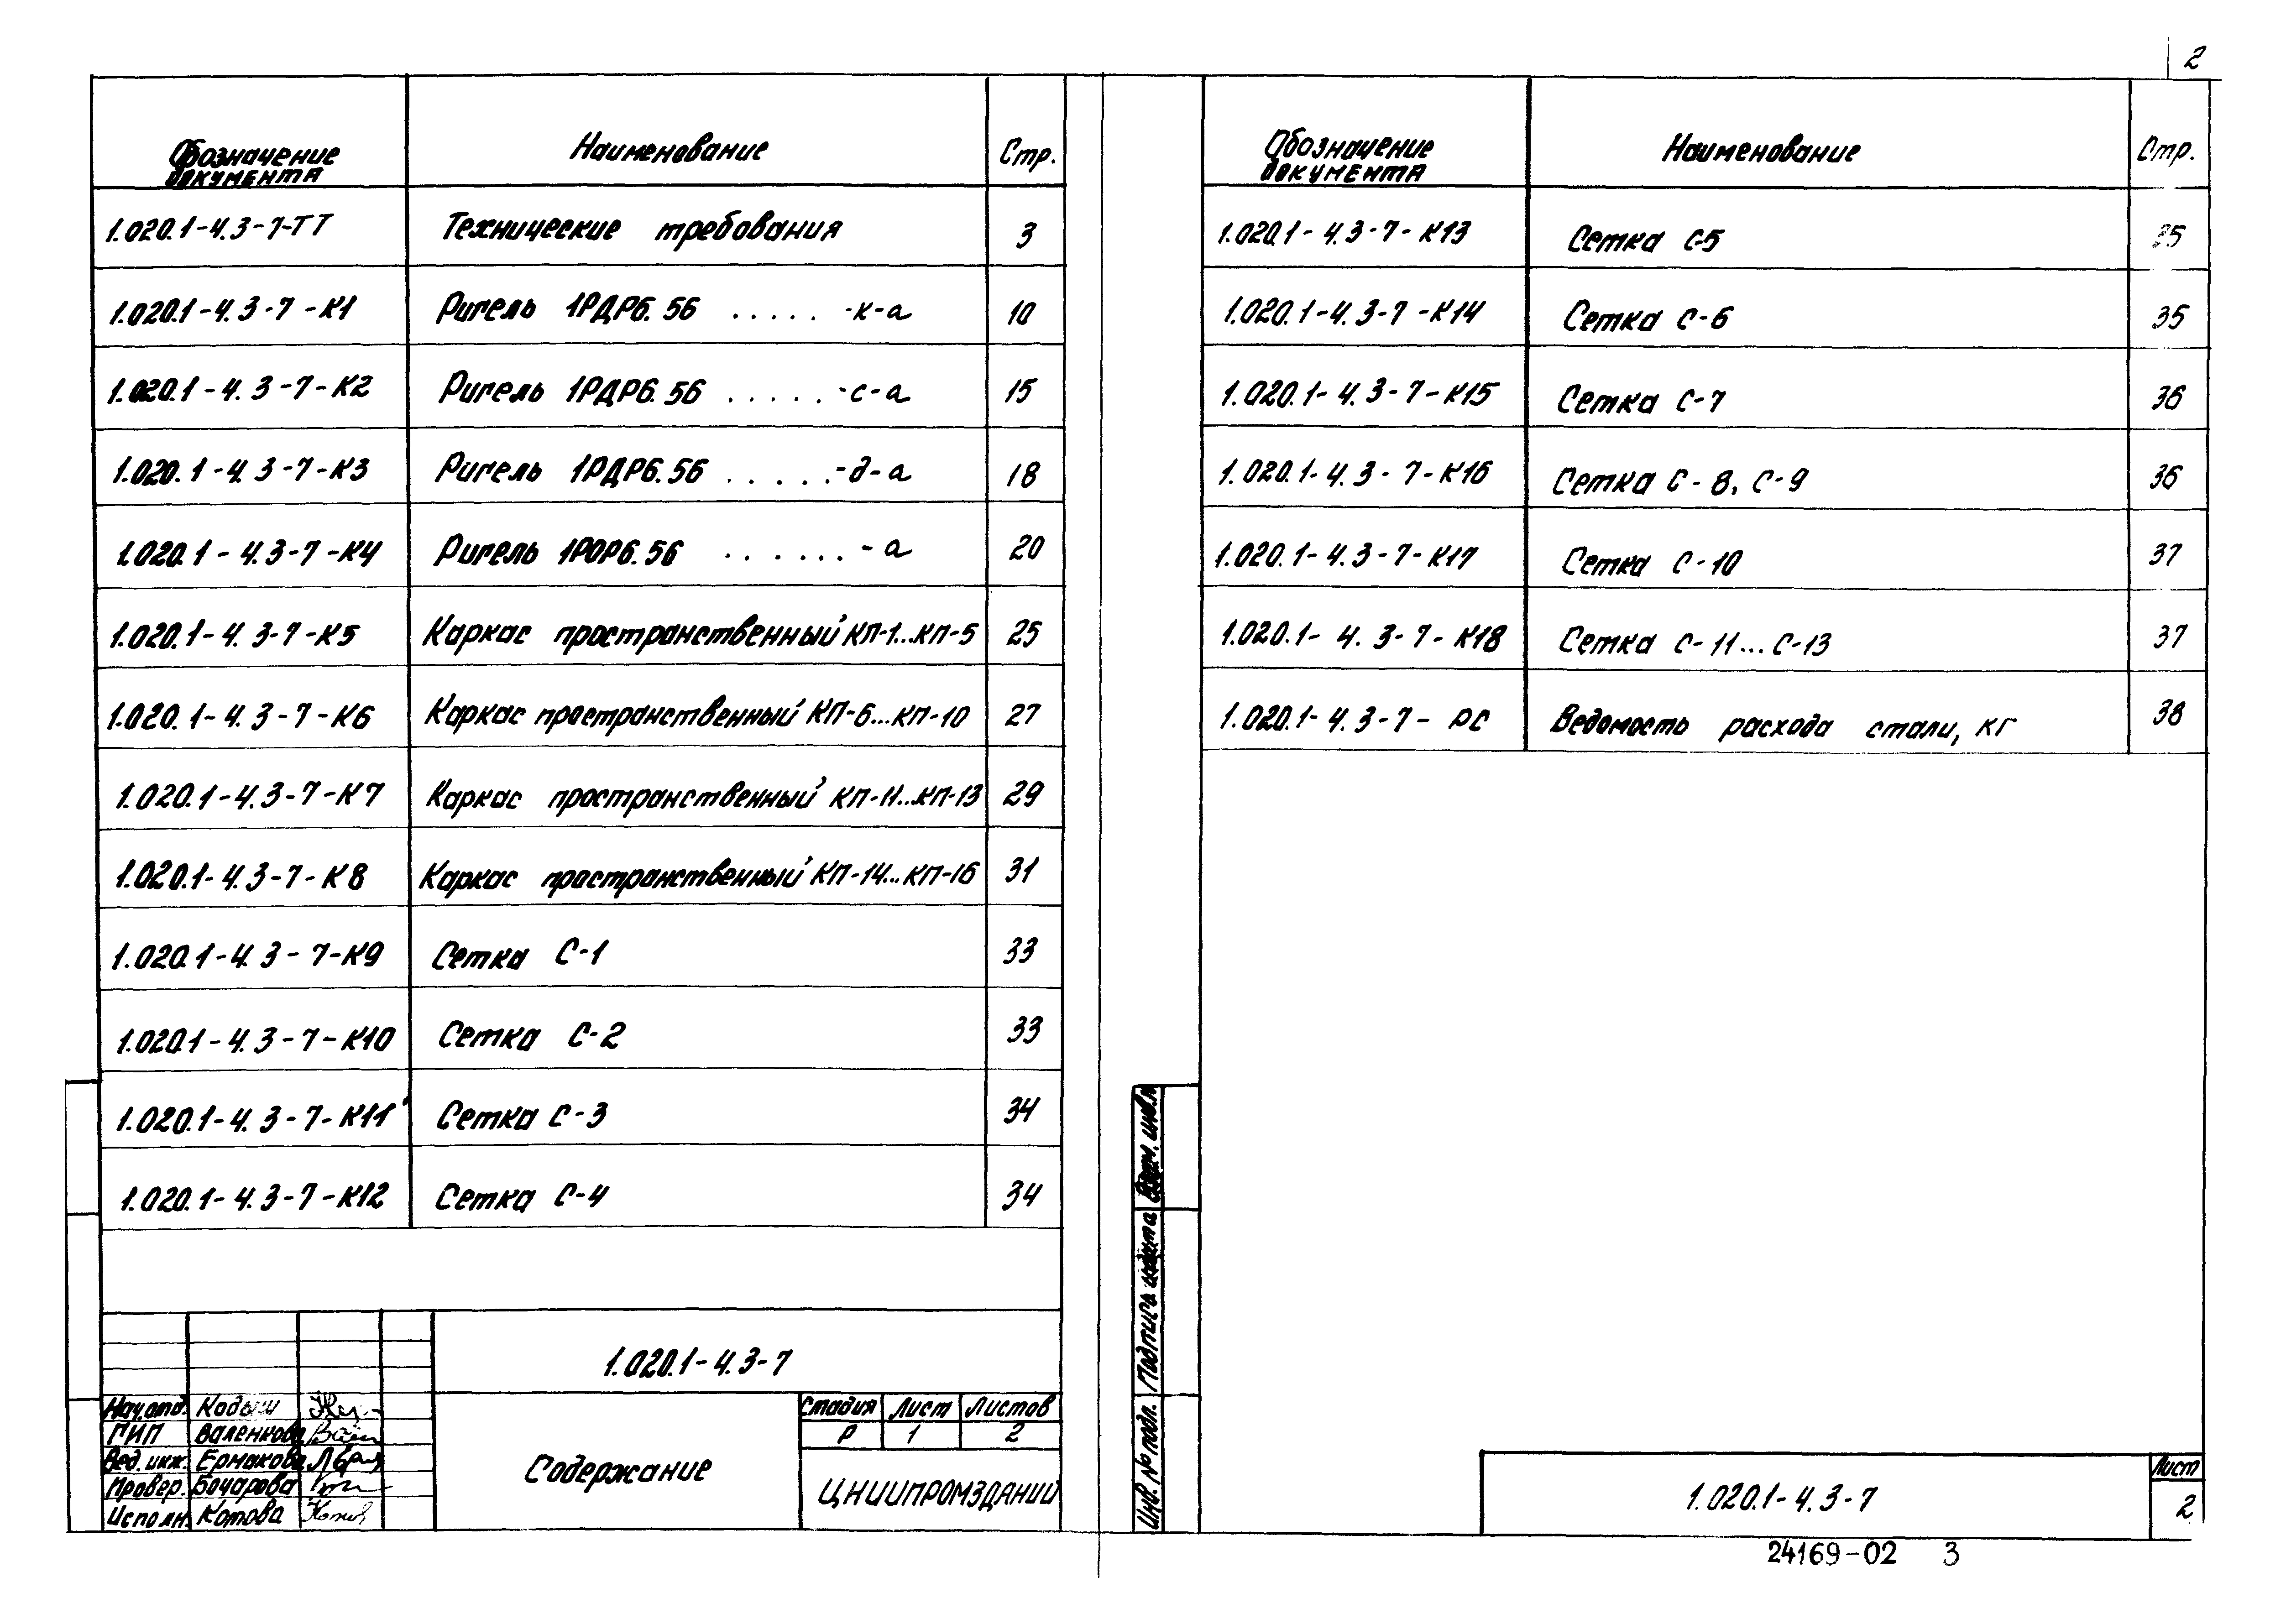 2
Обозначение документа Наименование Стр.
1.020.1-4.3-7-ТТ Технические требования 3
1.020.1-4.3-7-К1 Ригель 1РДР6.56 ..... -к-а 10
1.020.1-4.3-7-К2 Ригель 1РДР6.56 ..... -с-а 15
1.020.1-4.3-7-К3 Ригель 1РДР6.56 ..... -д-а 18
1.020.1-4.3-7-К4 Ригель 1РОР6.56 ...... -а 20
1.020.1-4.3-7-К5 Каркас пространственный КП-1...КП-5 25
1.020.1-4.3-7-К6 Каркас пространственный КП-6...КП-10 27
1.020.1-4.3-7-К7 Каркас пространственный КП-11...КП-13 29
1.020.1-4.3-7-К8 Каркас пространственный КП-14...КП-16 31
1.020.1-4.3-7-К9 Сетка С-1 33
1.020.1-4.3-7-К10 Сетка С-2 33
1.020.1-4.3-7-К11 Сетка С-3 34
1.020.1-4.3-7-К12 Сетка С-4 34
1.020.1-4.3-7
Нач.отд. Кодыш
ГИП Валенкова
Вед. инж. Ермакова
Провер. Бочарова
Исполн. Котова
Содержание
Стадия Лист Листов
Р 1 2
ЦНИИПРОМЗДАНИЙ
Обозначение документа Наименование Стр.
1.020.1-4.3-7-К13 Сетка С-5 35
1.020.1-4.3-7-К14 Сетка С-6 35
1.020.1-4.3-7-К15 Сетка С-7 36
1.020.1-4.3-7-К16 Сетка С-8, С-9 36
1.020.1-4.3-7-К17 Сетка С-10 37
1.020.1-4.3-7-К18 Сетка С-11...С-13 37
1.020.1-4.3-7-РС Ведомость расхода стали, кг 38
Инв. № подл. Подпись и дата Взам. инв.№
1.020.1-4.3-7
Лист
2
24169-02 3